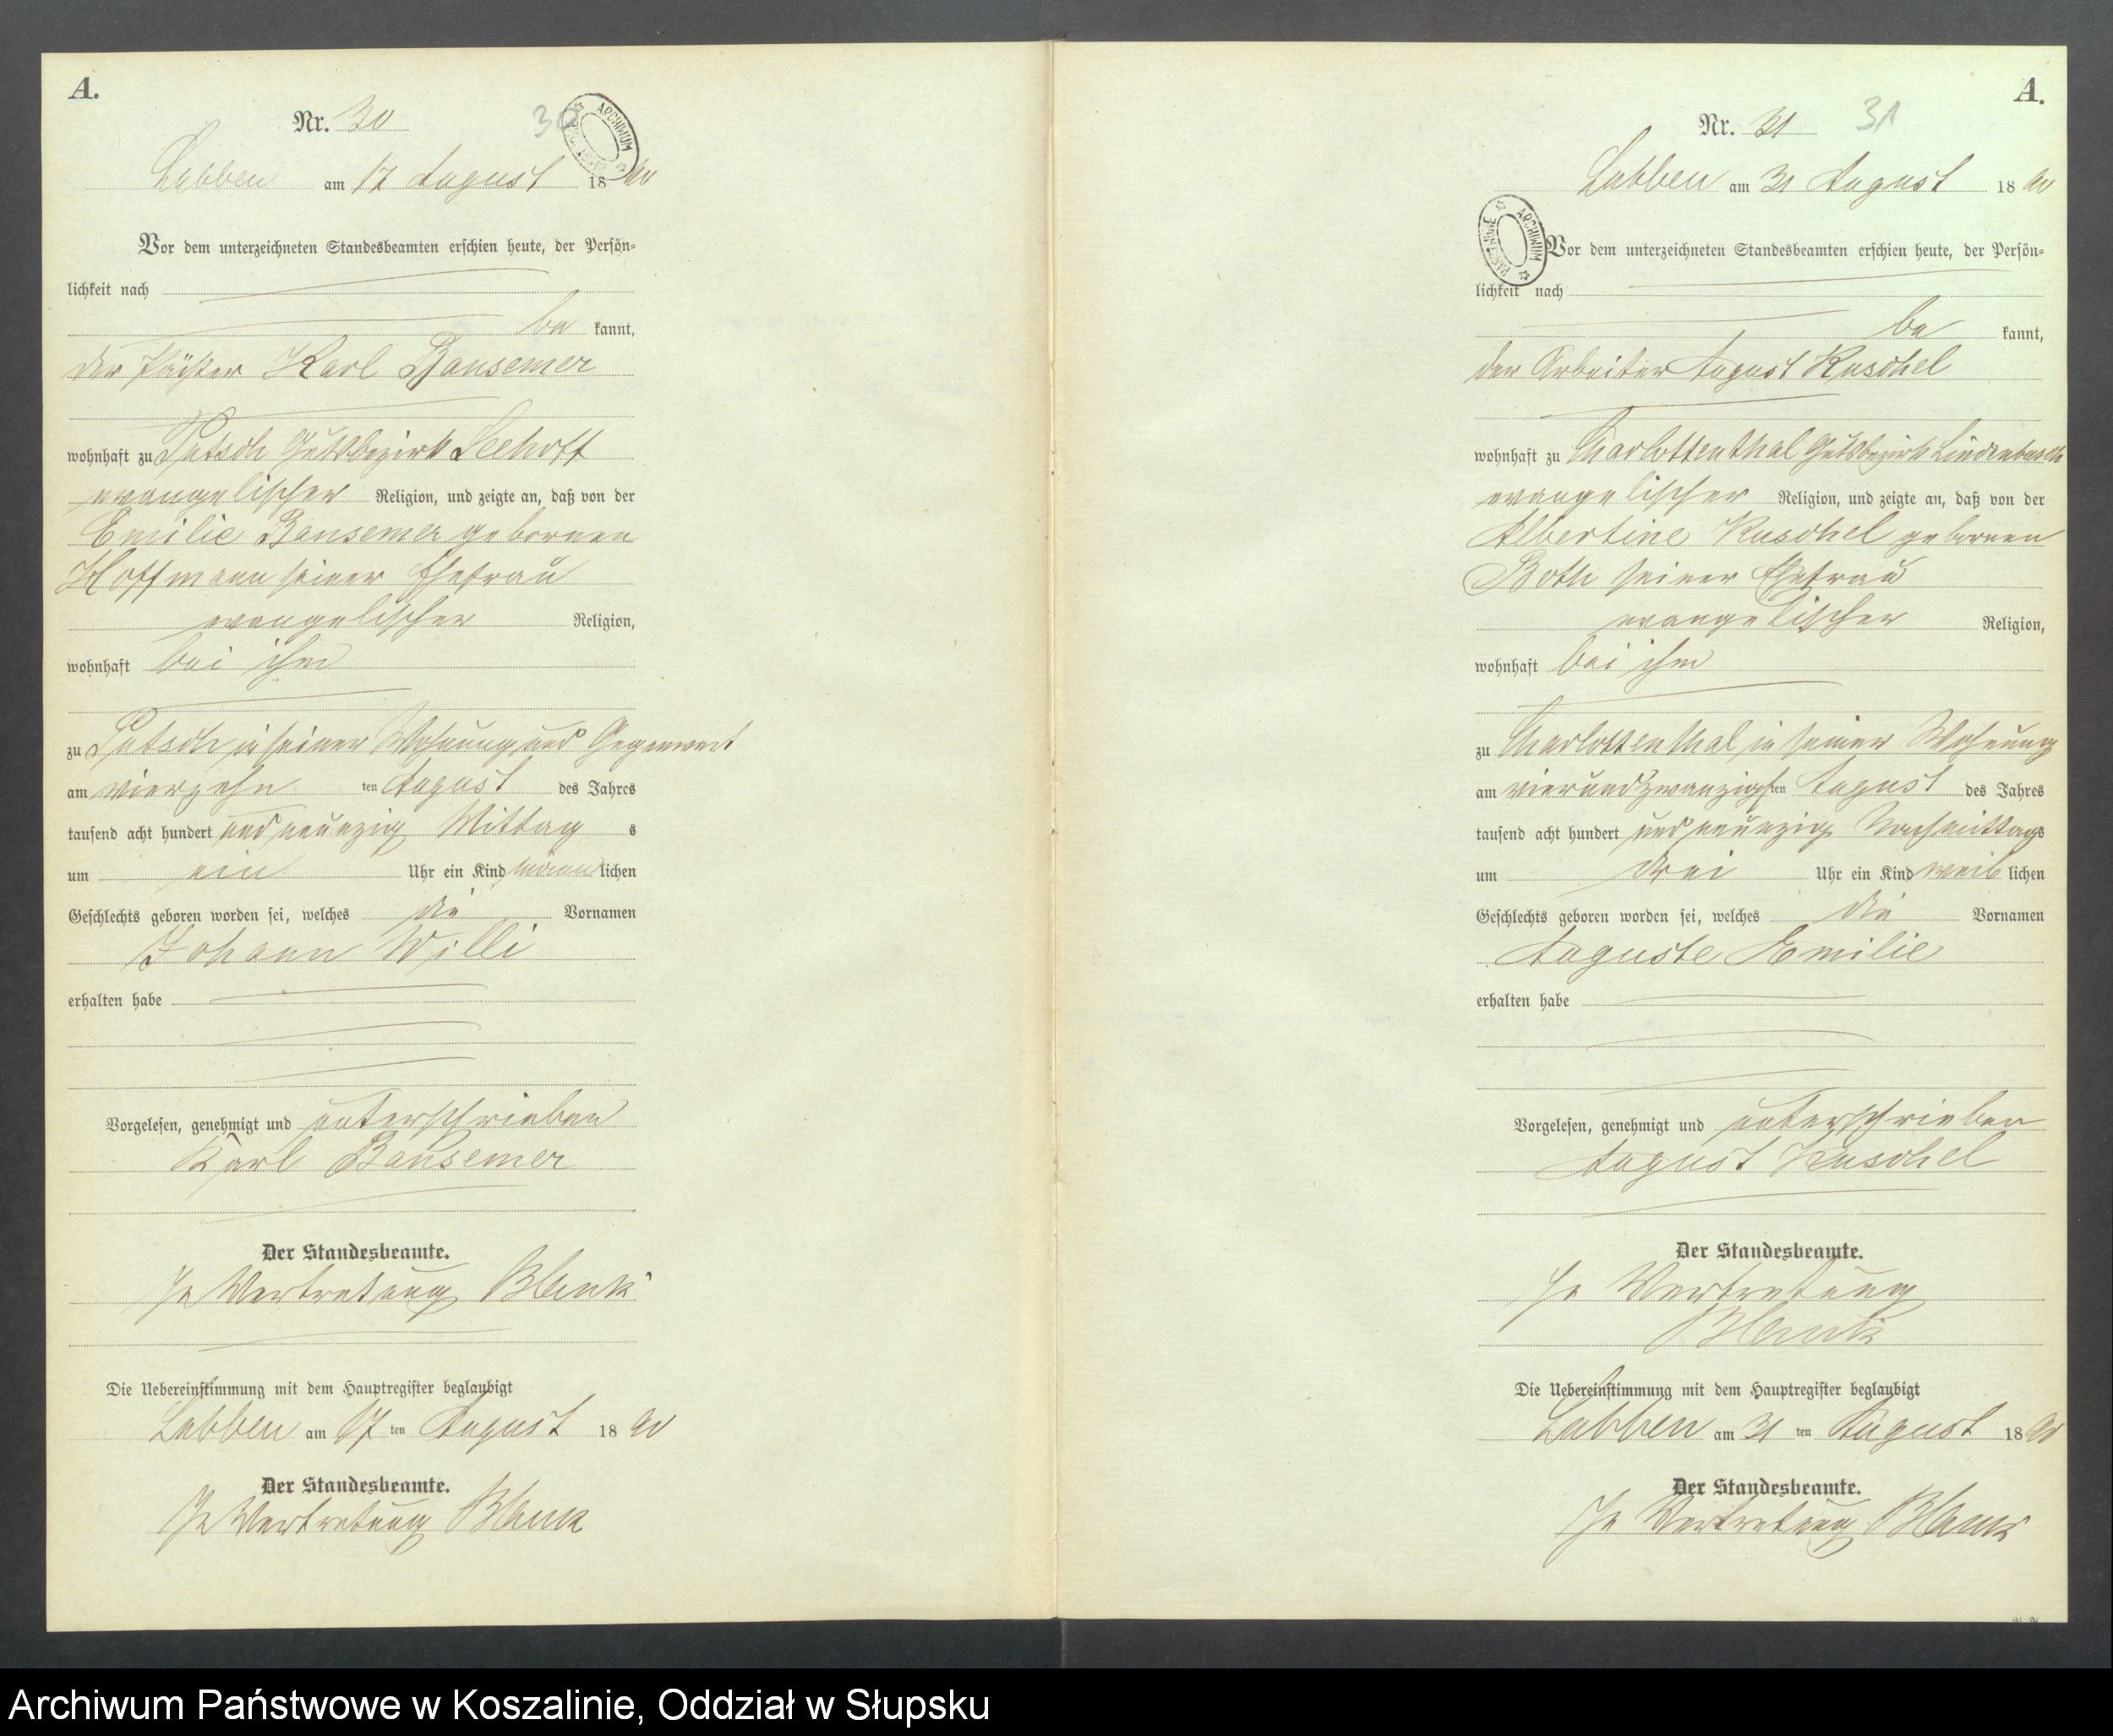 A.
Nr. 30
30
ARCHIWUM
Labben am 17 August 1890
Vor dem unterzeichneten Standesbeamten erschien heute, der Persön-
lichkeit nach
be kannt,
der Pächter Karl Bansemer
wohnhaft zu Gutsbezirk Seehoff
evangelischer Religion, und zeigte an, daß von der
Emilie Bansemer gebornen
Hoffmann seiner Ehefrau
evangelischer Religion,
wohnhaft bei ihm
zu in seiner Wohnung und Gegenwart
am vierzehn ten August des Jahres
tausend acht hundert und neunzig Mittag s
um ein Uhr ein Kind männ lichen
Geschlechts geboren worden sei, welches die Vornamen
Johann Willi
erhalten habe
Vorgelesen, genehmigt und unterschrieben
Karl Bansemer
Der Standesbeamte.
In Vertretung Blank
Die Uebereinstimmung mit dem Hauptregister beglaubigt
Labben am 17 ten August 1890
Der Standesbeamte.
In Vertretung Blank
A.
Nr. 31
31
Labben am 31 August 1890
ARCHIWUM PAŃSTWOWE
Vor dem unterzeichneten Standesbeamten erschien heute, der Persön-
lichkeit nach
be kannt,
der Arbeiter August Kuschel
wohnhaft zu Charlottenthal Gutsbezirk Lindenbusch
evangelischer Religion, und zeigte an, daß von der
Albertine Kuschel gebornen
Both seiner Ehefrau
evangelischer Religion,
wohnhaft bei ihm
zu Charlottenthal in seiner Wohnung
am vierundzwanzigsten August des Jahres
tausend acht hundert und neunzig Nachmittags
um drei Uhr ein Kind weib lichen
Geschlechts geboren worden sei, welches die Vornamen
Auguste Emilie
erhalten habe
Vorgelesen, genehmigt und unterschrieben
August Kuschel
Der Standesbeamte.
In Vertretung
Blank
Die Uebereinstimmung mit dem Hauptregister beglaubigt
Labben am 31 ten August 1890
Der Standesbeamte.
In Vertretung Blank
Archiwum Państwowe w Koszalinie, Oddział w Słupsku